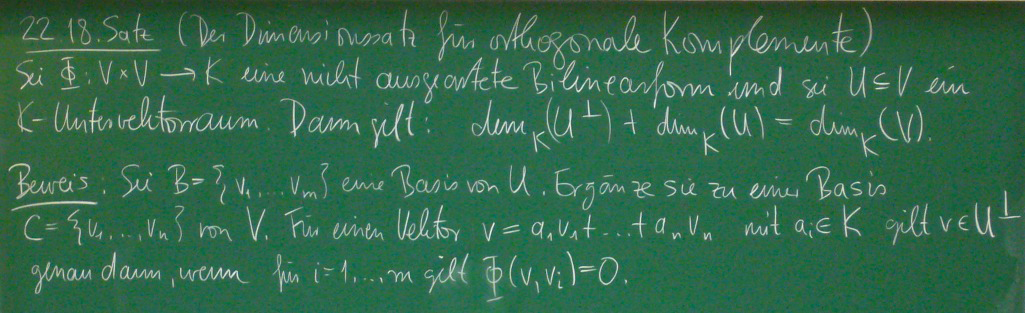 22.18. Satz (Der Dimensionssatz für orthogonale Komplemente)
Sei Φ: V × V → K eine nicht ausgeartete Bilinearform und sei U ⊆ V ein
K-Untervektorraum. Dann gilt: dim_K(U^⊥) + dim_K(U) = dim_K(V).
Beweis: Sei B = {v₁, ... v_m} eine Basis von U. Ergänze sie zu einer Basis
C = {v₁, ..., v_n} von V. Für einen Vektor v = a₁v₁ + ... + a_n v_n mit a_i ∈ K gilt v ∈ U^⊥
genau dann, wenn für i = 1, ..., m gilt Φ(v, v_i) = 0.